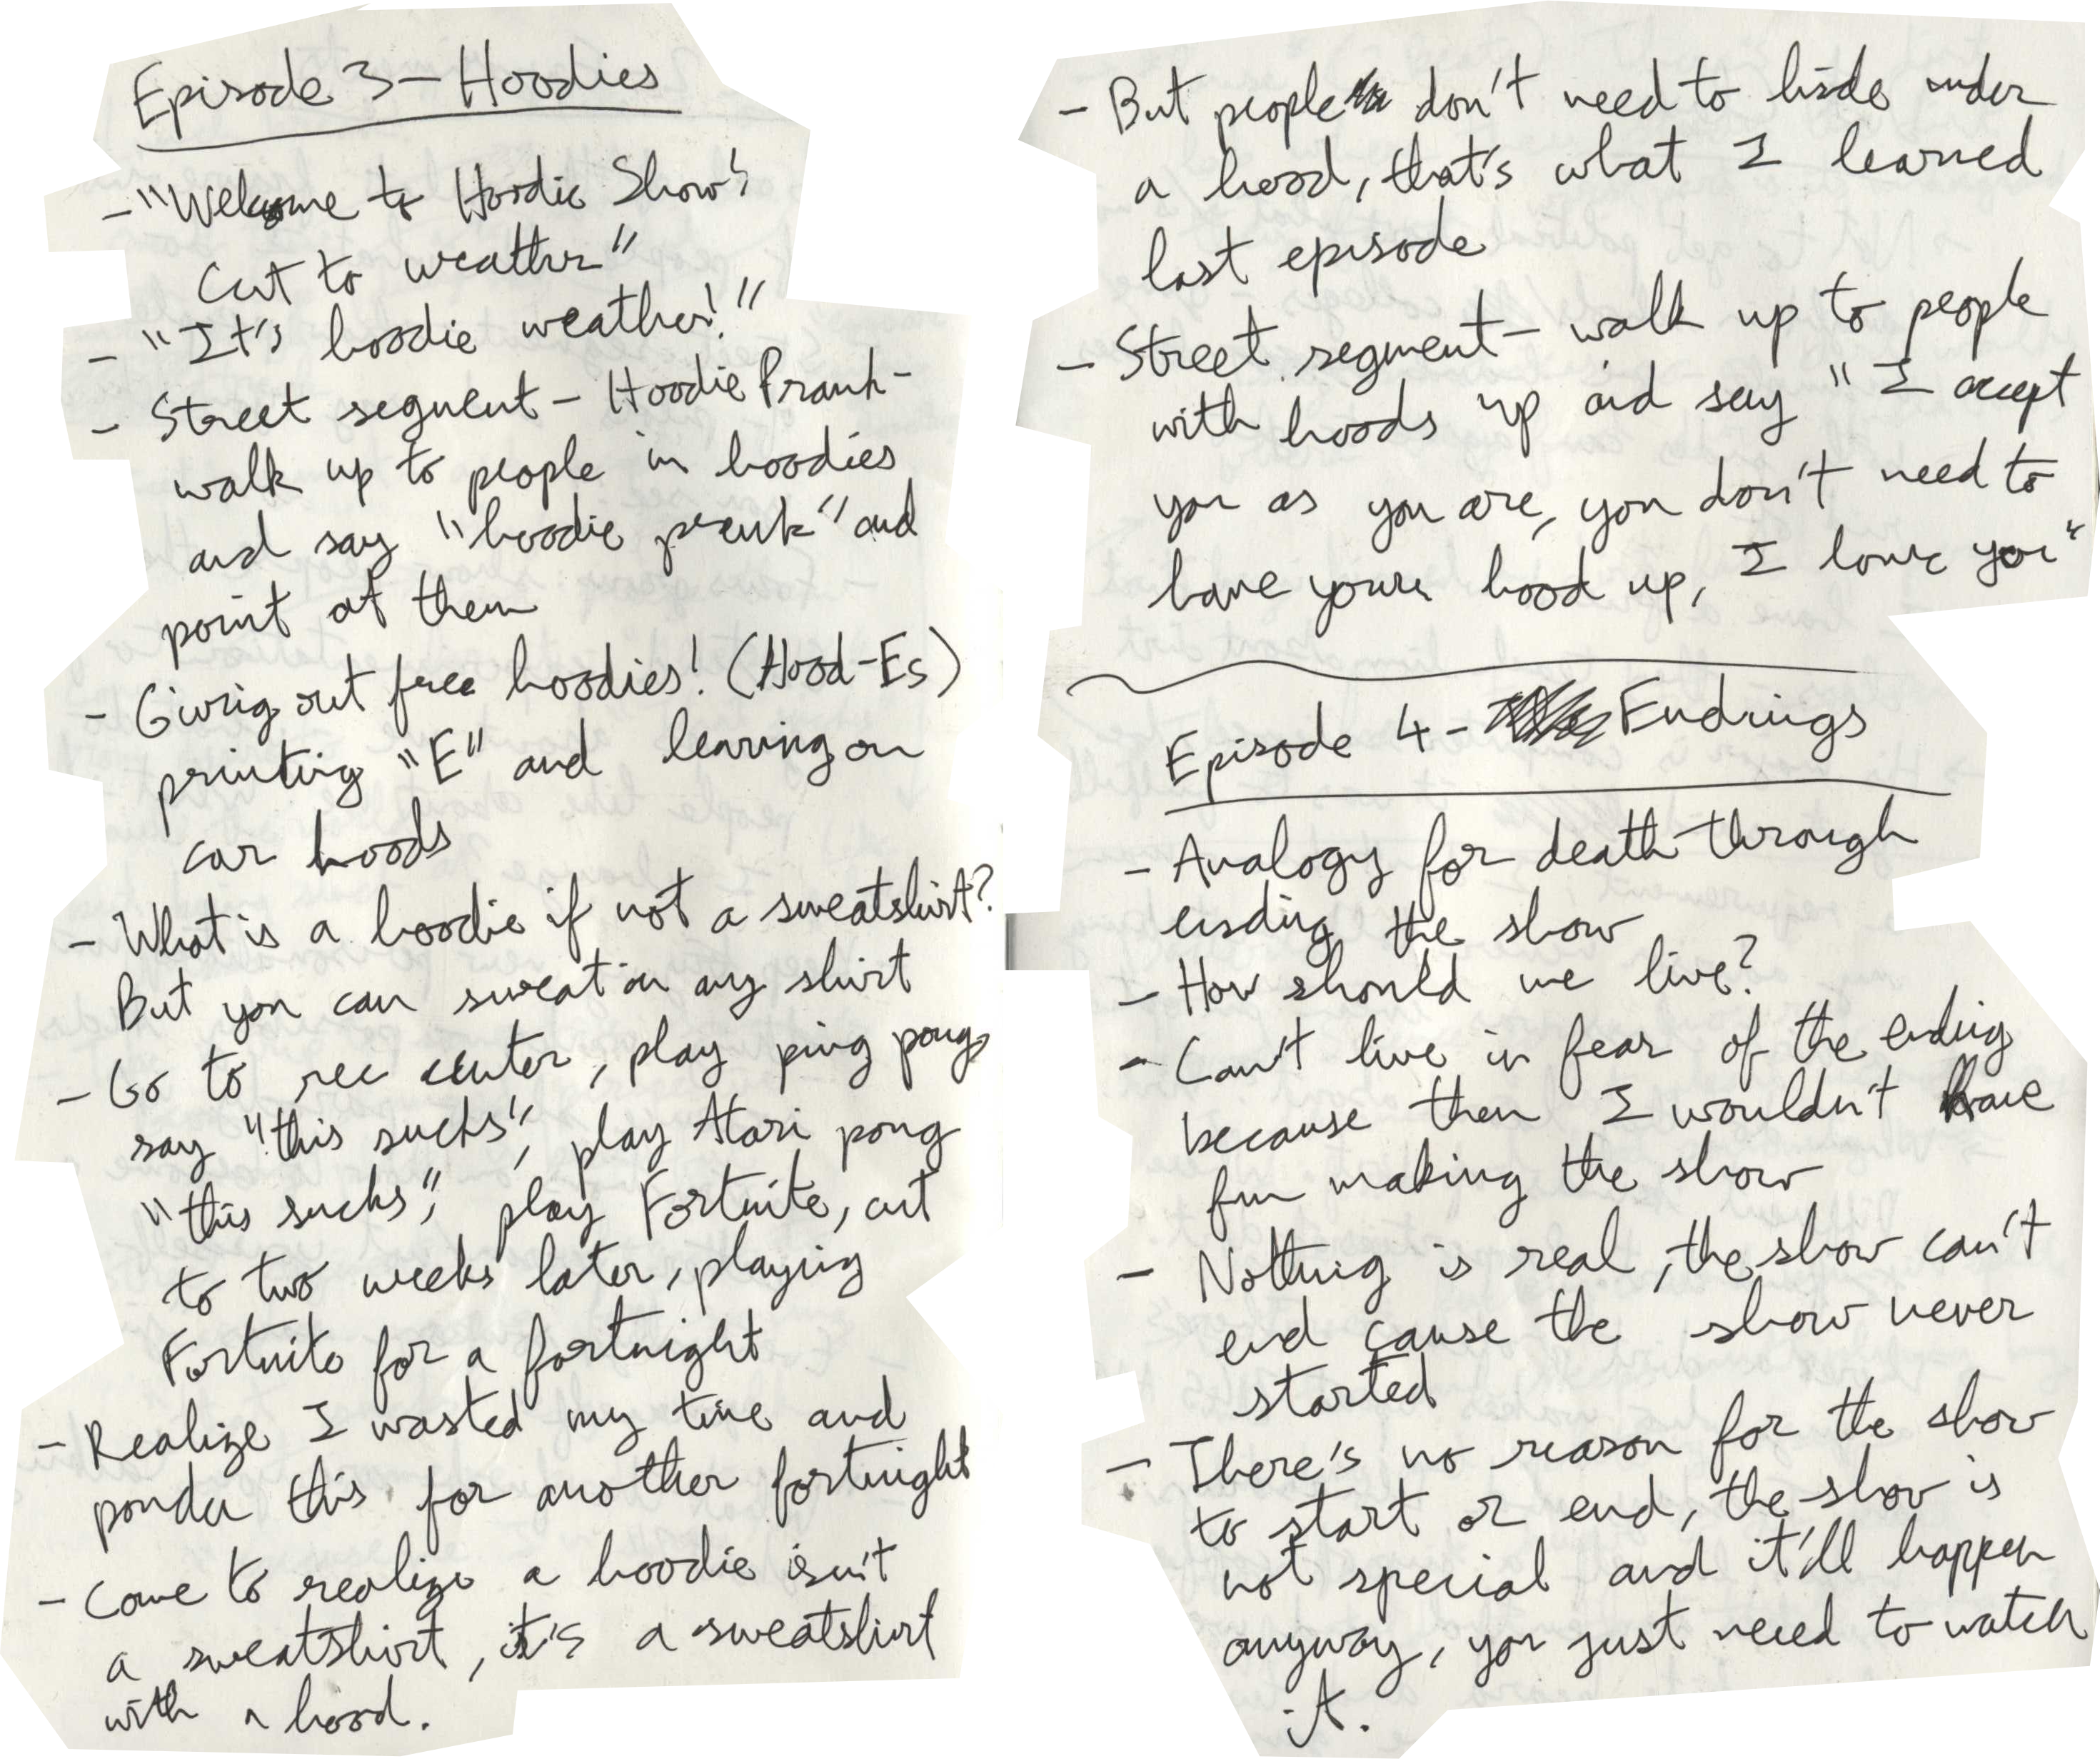 Episode 3 - Hoodies
- "Welcome to Hoodie Show!
Cut to weather"
- "It's hoodie weather!"
- Street segment - Hoodie Prank -
walk up to people in hoodies
and say "hoodie prank" and
point at them
- Giving out free hoodies! (Hood-Es)
printing "E" and leaving on
car hoods
- What is a hoodie if not a sweatshirt?
But you can sweat in any shirt
- Go to rec center, play ping pong
say "this sucks", play Atari pong
"this sucks", play Fortnite, cut
to two weeks later, playing
Fortnite for a fortnight
- Realize I wasted my time and
ponder this for another fortnight
- Come to realize a hoodie isn't
a sweatshirt, it's a sweatshirt
with a hood.
- But people don't need to hide under
a hood, that's what I learned
last episode
- Street segment - walk up to people
with hoods up and say "I accept
you as you are, you don't need to
have your hood up, I love you"
Episode 4 - Endings
- Analogy for death through
ending the show
- How should we live?
- Can't live in fear of the ending
because then I wouldn't have
fun making the show
- Nothing is real, the show can't
end cause the show never
started
- There's no reason for the show
to start or end, the show is
not special and it'll happen
anyway, you just need to watch
it.